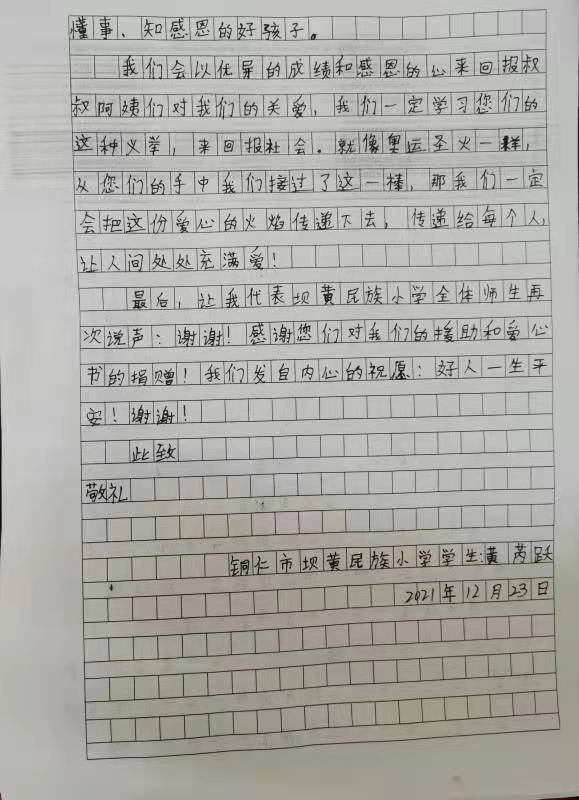 懂事、知感恩的好孩子。
我们会以优异的成绩和感恩的心来回报叔
叔阿姨们对我们的关爱，我们一定学习您们的
这种义举，来回报社会。就像奥运圣火一样，
从您们的手中我们接过了这一棒，那我们一定
会把这份爱心的火焰传递下去，传递给每个人，
让人间处处充满爱！
最后，让我代表坝黄民族小学全体师生再
次说声：谢谢！感谢您们对我们的援助和爱心
书的捐赠！我们发自内心的祝愿：好人一生平
安！谢谢！
此致
敬礼
铜仁市坝黄民族小学学生：黄芮跃
2021年12月23日